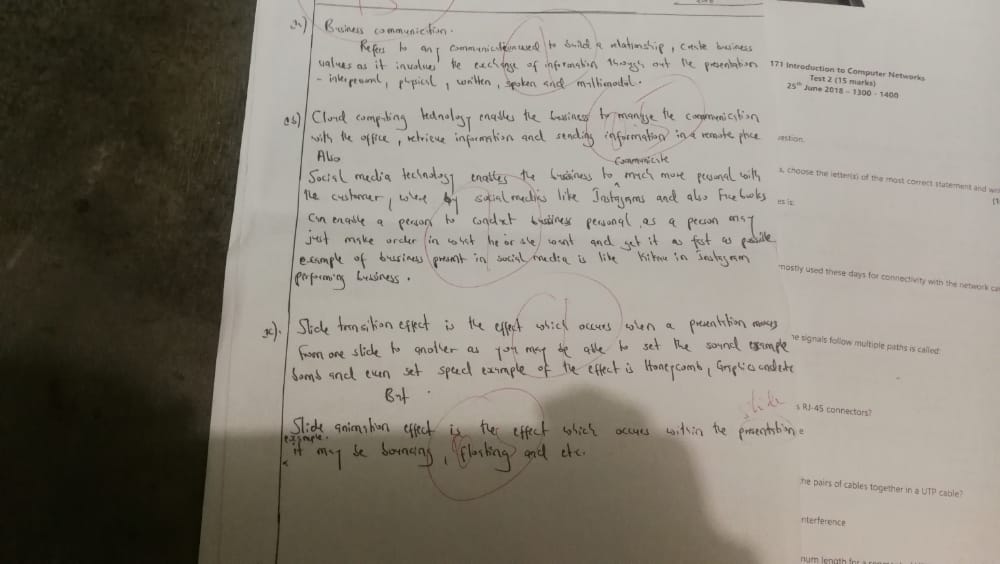 Business communicition.
Refers to any communication used to build a relationship, create business
values as it involves the exchange of information through out the presentation
- interpersonal, physical, written, spoken and multimodal.
Cloud computing technology enables the business to manage the communication
with the office, retrieve information and sending information in a remote place
Also
communicate
Social media technology enables the business to much more personal with
the customer, where by social medias like Instagrams and also Facebooks
can enable a person to conduct business personal as a person may
just make order in what he or she want and get it as fast as possible
example of business present in social media is like in Instagram
performing business.
Slide transition effect is the effect which occurs when a presentation moves
from one slide to another as you may be able to set the sound example
bomb and even set speed example of the effect is Honeycomb,
But
slide
Slide animation effect is the effect which occurs within the presentation
example.
it may be bouncing, floating and etc.
171 Introduction to Computer Networks
Test 2 (15 marks)
25th June 2018 - 1300 - 1400
s, choose the letter(s) of the most correct statement and
es is:
mostly used these days for connectivity with the network
signals follow multiple paths is called:
s RJ-45 connectors?
he pairs of cables together in a UTP cable?
nterference
num length for a